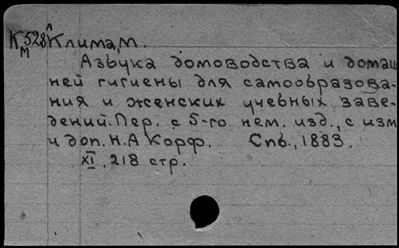 А
К528 Клима, М.
М
Азбука домоводства и домаш
ней гигиены для самообразова-
ния и женских учебных заве-
дений. Пер. с 5-го нем. изд., с изм
и доп. Н.А Корф. Спб., 1883.
XI, 218 стр.